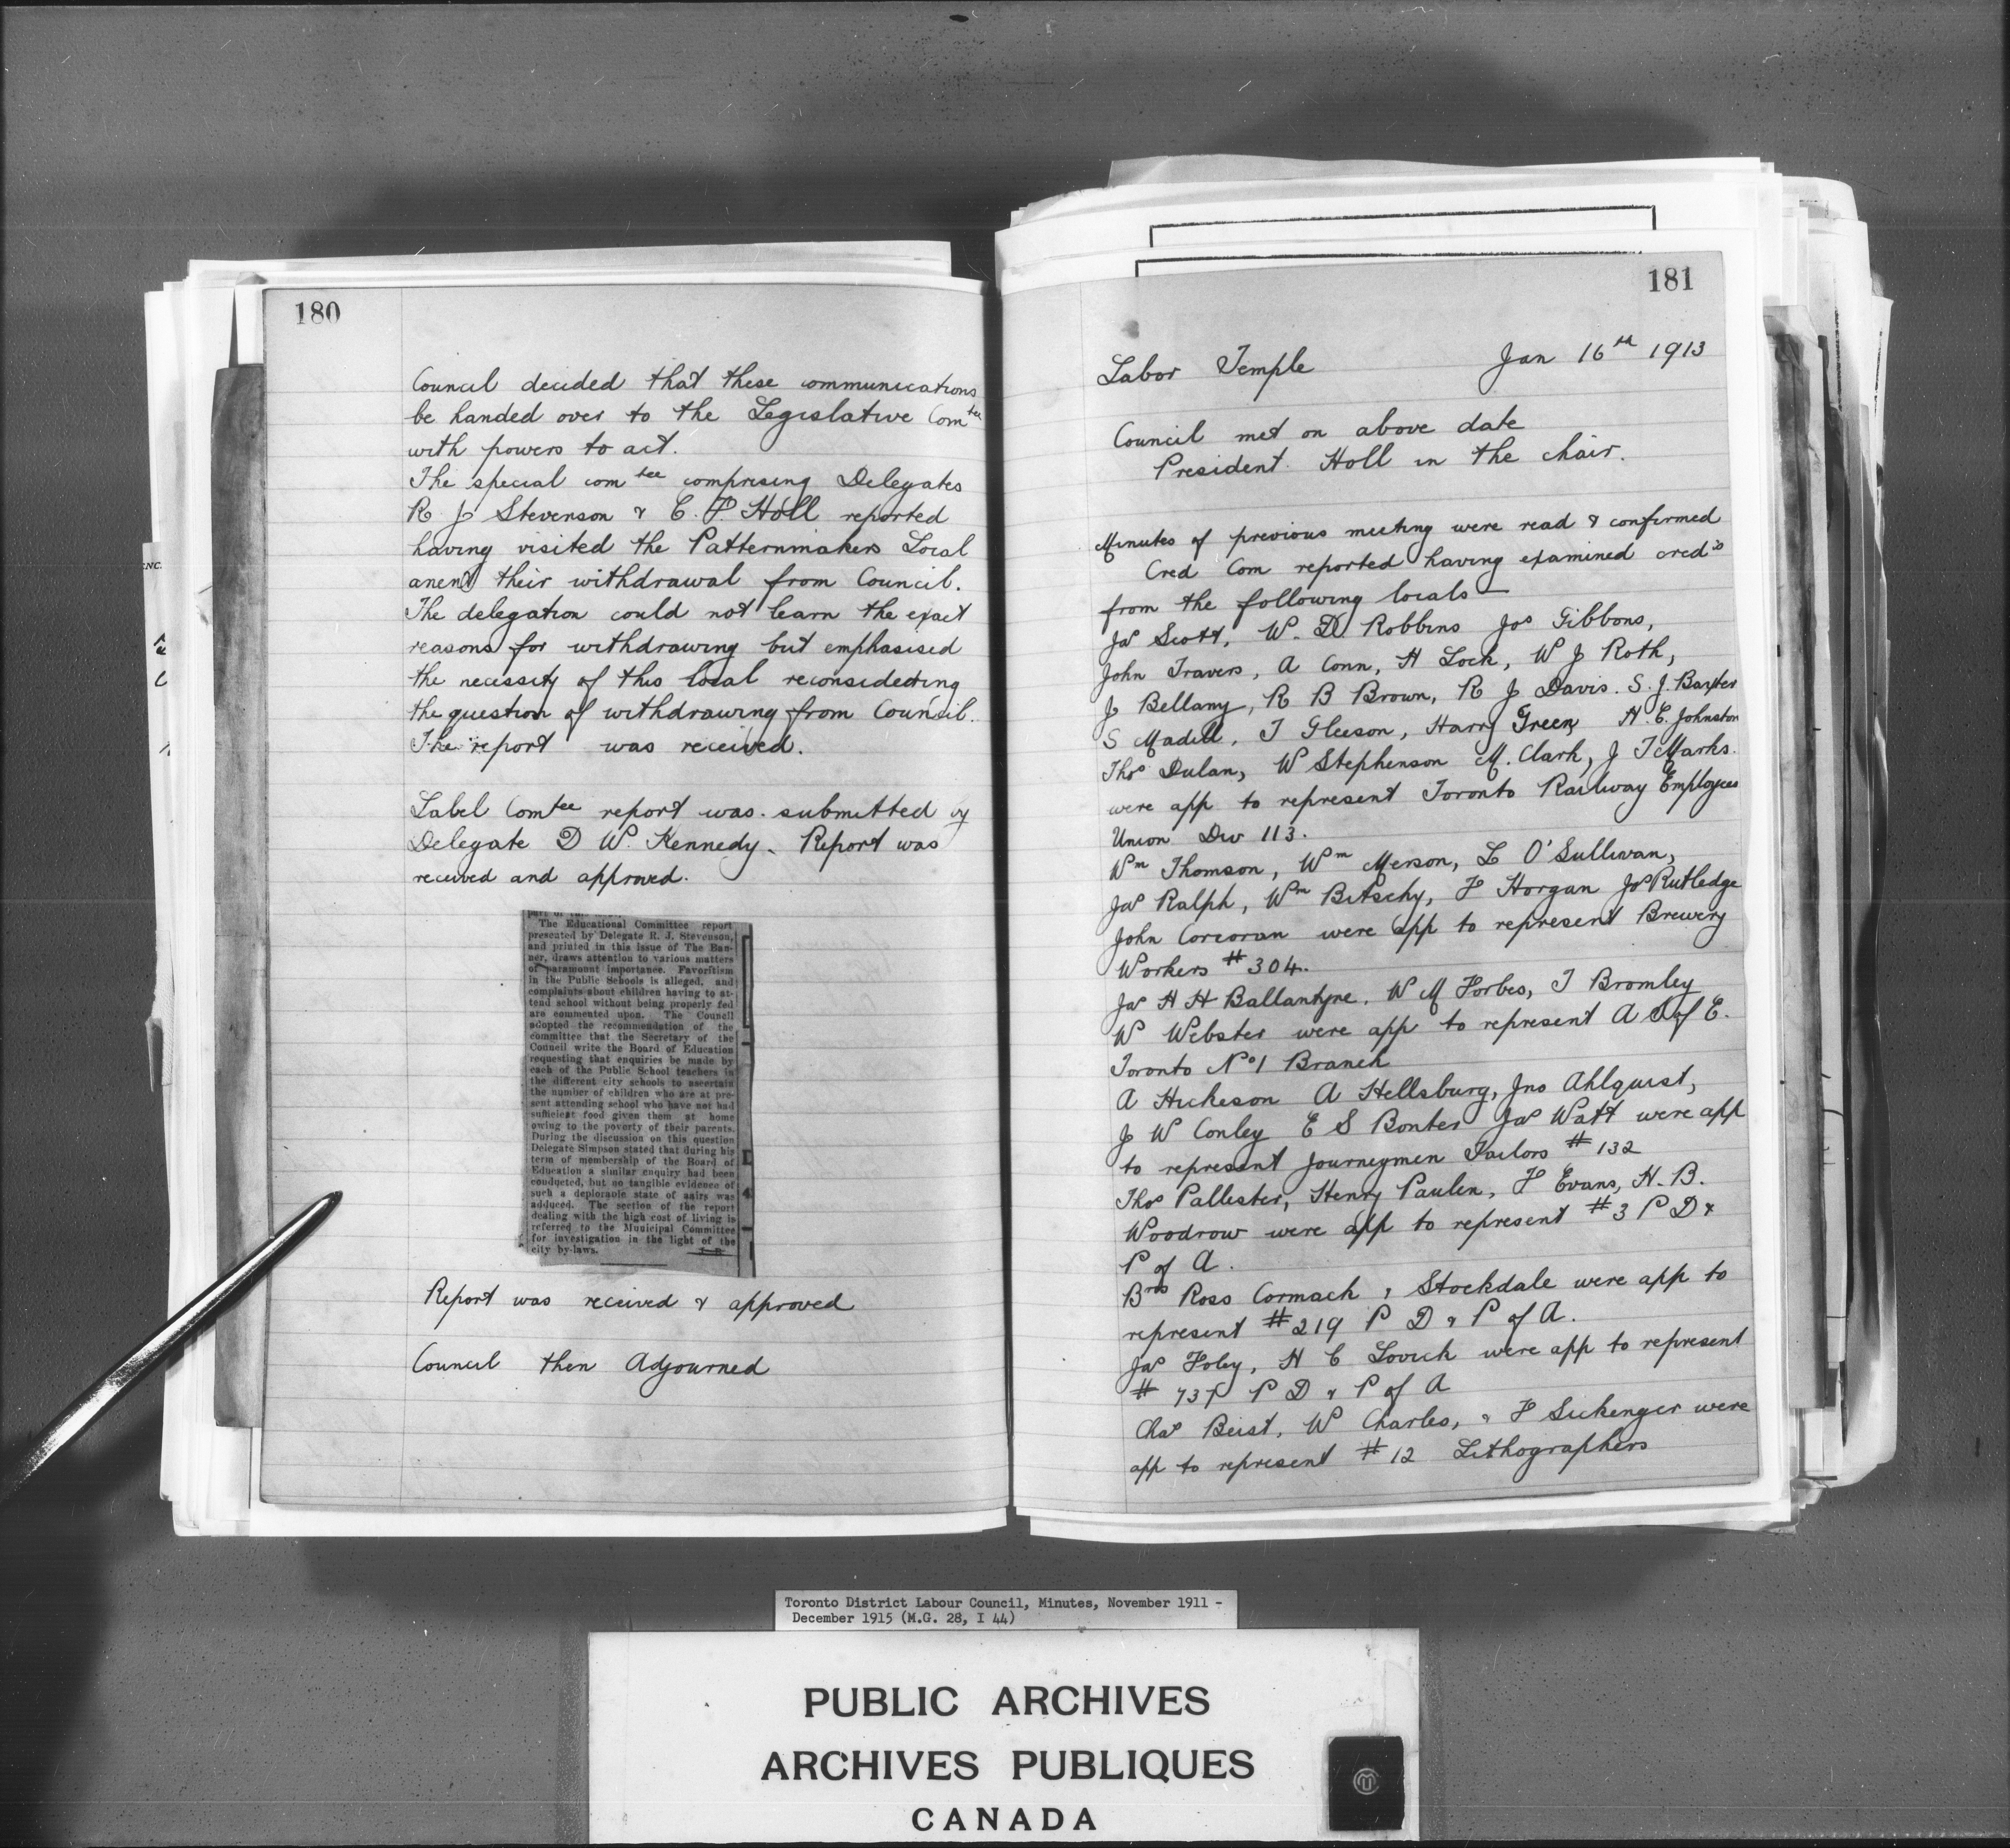 180
Council decided that these communications
be handed over to the Legislative Comtee
with powers to act.
The special comtee comprising Delegates
R J Stevenson & C. P. Holl reported
having visited the Patternmakers Local
anent their withdrawal from Council.
The delegation could not learn the exact
reasons for withdrawing but emphasised
the necessity of this local reconsidering
the question of withdrawing from Council.
The report was received.
Label Comtee report was submitted by
Delegate D W. Kennedy. Report was
received and approved.
The Educational Committee report
presented by Delegate R. J. Stevenson,
and printed in this issue of The Ban-
ner, draws attention to various matters
of paramount importance. Favoritism
in the Public Schools is alleged, and
complaints about children having to at-
tend school without being properly fed
are commented upon. The Council
adopted the recommendation of the
committee that the Secretary of the
Council write the Board of Education
requesting that enquiries be made by
each of the Public School teachers in
the different city schools to ascertain
the number of children who are at pre-
sent attending school who have not had
sufficient food given them at home
owing to the poverty of their parents.
During the discussion on this question
Delegate Simpson stated that during his
term of membership of the Board of
Education a similar enquiry had been
conducted, but no tangible evidence of
such a deplorable state of aairs was
adduced. The section of the report
dealing with the high cost of living is
referred to the Municipal Committee
for investigation in the light of the
city by-laws.
Report was received & approved
Council then Adjourned
181
Labor Temple Jan 16th 1913
Council met on above date
President Holl in the chair.
Minutes of previous meeting were read & confirmed
Cred Com reported having examined creds
from the following locals —
Jas Scott, W. D. Robbins Jos Gibbons,
John Travers, A Conn, H Lock, W J Roth,
J Bellamy, R B Brown, R J Davis. S. J. Baxter
S Madill, T Gleeson, Harry Green, H. E. Johnston
Thos Dulan, W Stephenson M. Clark, J T Marks.
were app to represent Toronto Railway Employees
Union Div 113.
Wm Thomson, Wm Merson, L O'Sullivan,
Jas Ralph, Wm Bitschy, F Horgan Jos Rutledge
John Corcoran were app to represent Brewery
Workers #304.
Jas H H Ballantyne, W M Forbes, T Bromley
W Webster were app to represent A S of E.
Toronto No 1 Branch
A Hickeson A Hellsburg, Jno Ahlquist,
J W Conley E S Bonter Jas Watt were app
to represent Journeymen Tailors #132
Thos Pallester, Henry Paulin, F Evans, H. B.
Woodrow were app to represent #3 P D &
P of A.
Bros Ross Cormack & Stockdale were app to
represent #219 P D & P of A.
Jas Foley, H C Lovick were app to represent
# P D & P of A
Chas Beist, W Charles, & F Sickenger were
app to represent #12 Lithographers
Toronto District Labour Council, Minutes, November 1911 -
December 1915 (M.G. 28, I 44)
PUBLIC ARCHIVES
ARCHIVES PUBLIQUES
CANADA